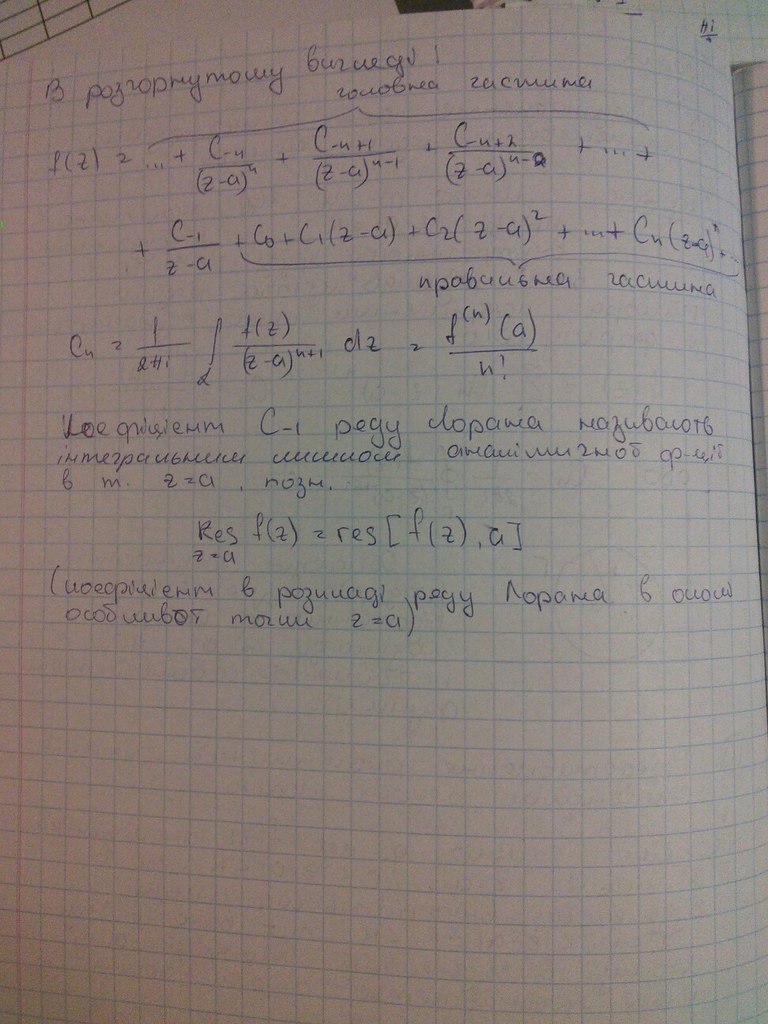 В розгорнутому вигляді:
головна частина
f(z) = ... + C-n/(z-a)^n + C-n+1/(z-a)^(n-1) + C-n+2/(z-a)^(n-2) + ... +
+ C-1/(z-a) + C0 + C1(z-a) + C2(z-a)^2 + ... + Cn(z-a)^n + ...
правильна частина
Cn = 1/(2πi) ∫_L f(z)/(z-a)^(n+1) dz = f^(n)(a)/n!
Коефіцієнт C-1 ряду Лорана називають
інтегральним лишком аналітичної ф-ції
в т. z=a, позн.
Res_(z=a) f(z) = res[f(z), a]
(коефіцієнт в розкладі ряду Лорана в околі
особливої точки z=a)